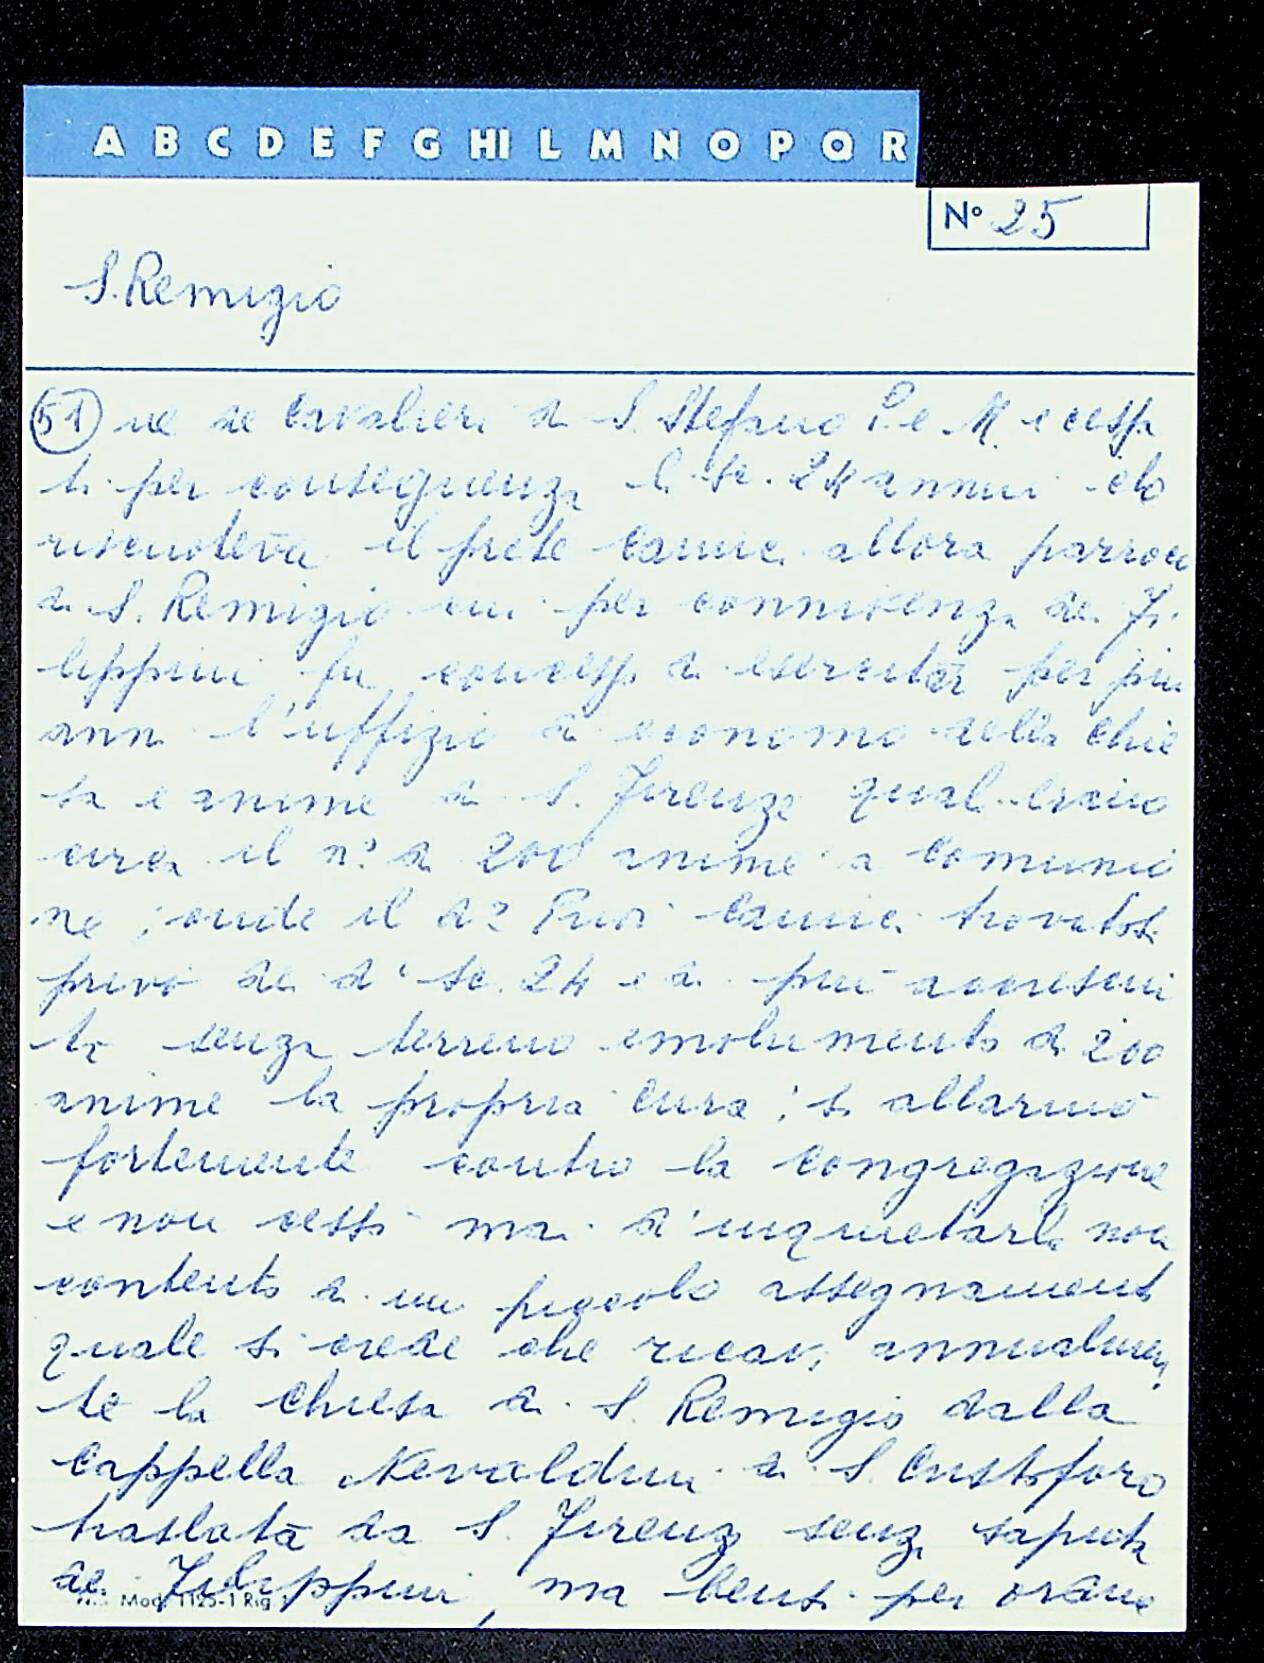 A B C D E F G HI L M N O P Q R
N° 25
S. Remigio
51 ne de Cavalieri di S. Stefano P. e M. e cessa
ti per conseguenza li sc. 24 annui che
riscuoteva il prete allora parroco
di S. Remigio cui per connivenza dei Fi
lippini fu concesso di esercitar per più
anni l'uffizio di economo della Chie
sa e anime di S. Firenze quali erano
circa il n° di 200 anime a comunio
ne; onde il d° Prior trovatosi
privo dei d' sc. 24 e di più accresciu
ta senza terreno emolumento di 200
anime la propria cura; si allarmò
fortemente contro la Congregazione
e non cessò mai d'inquietarla non
contento di un piccolo assegnamento
quale si crede che ricavi annualmen
te la Chiesa di S. Remigio dalla
Cappella di S. Cristoforo
traslata da S. Firenze senza saputa
dei Filippini, ma bensì per ordine
Mod. 1125-1 Rig